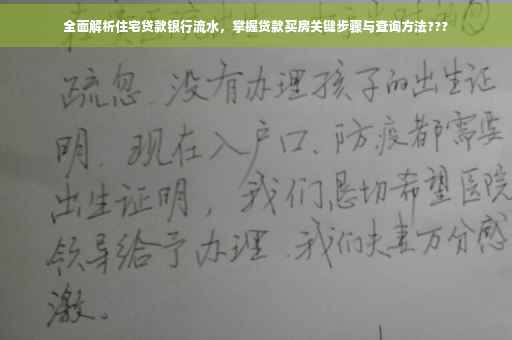 全面解析住宅贷款银行流水，掌握贷款买房关键步骤与查询方法???
疏忽、没有办理孩子的出生证
明、现在入户口、防疫都需要
出生证明，我们恳切希望医院
领导给予办理、我们夫妻万分感
激。